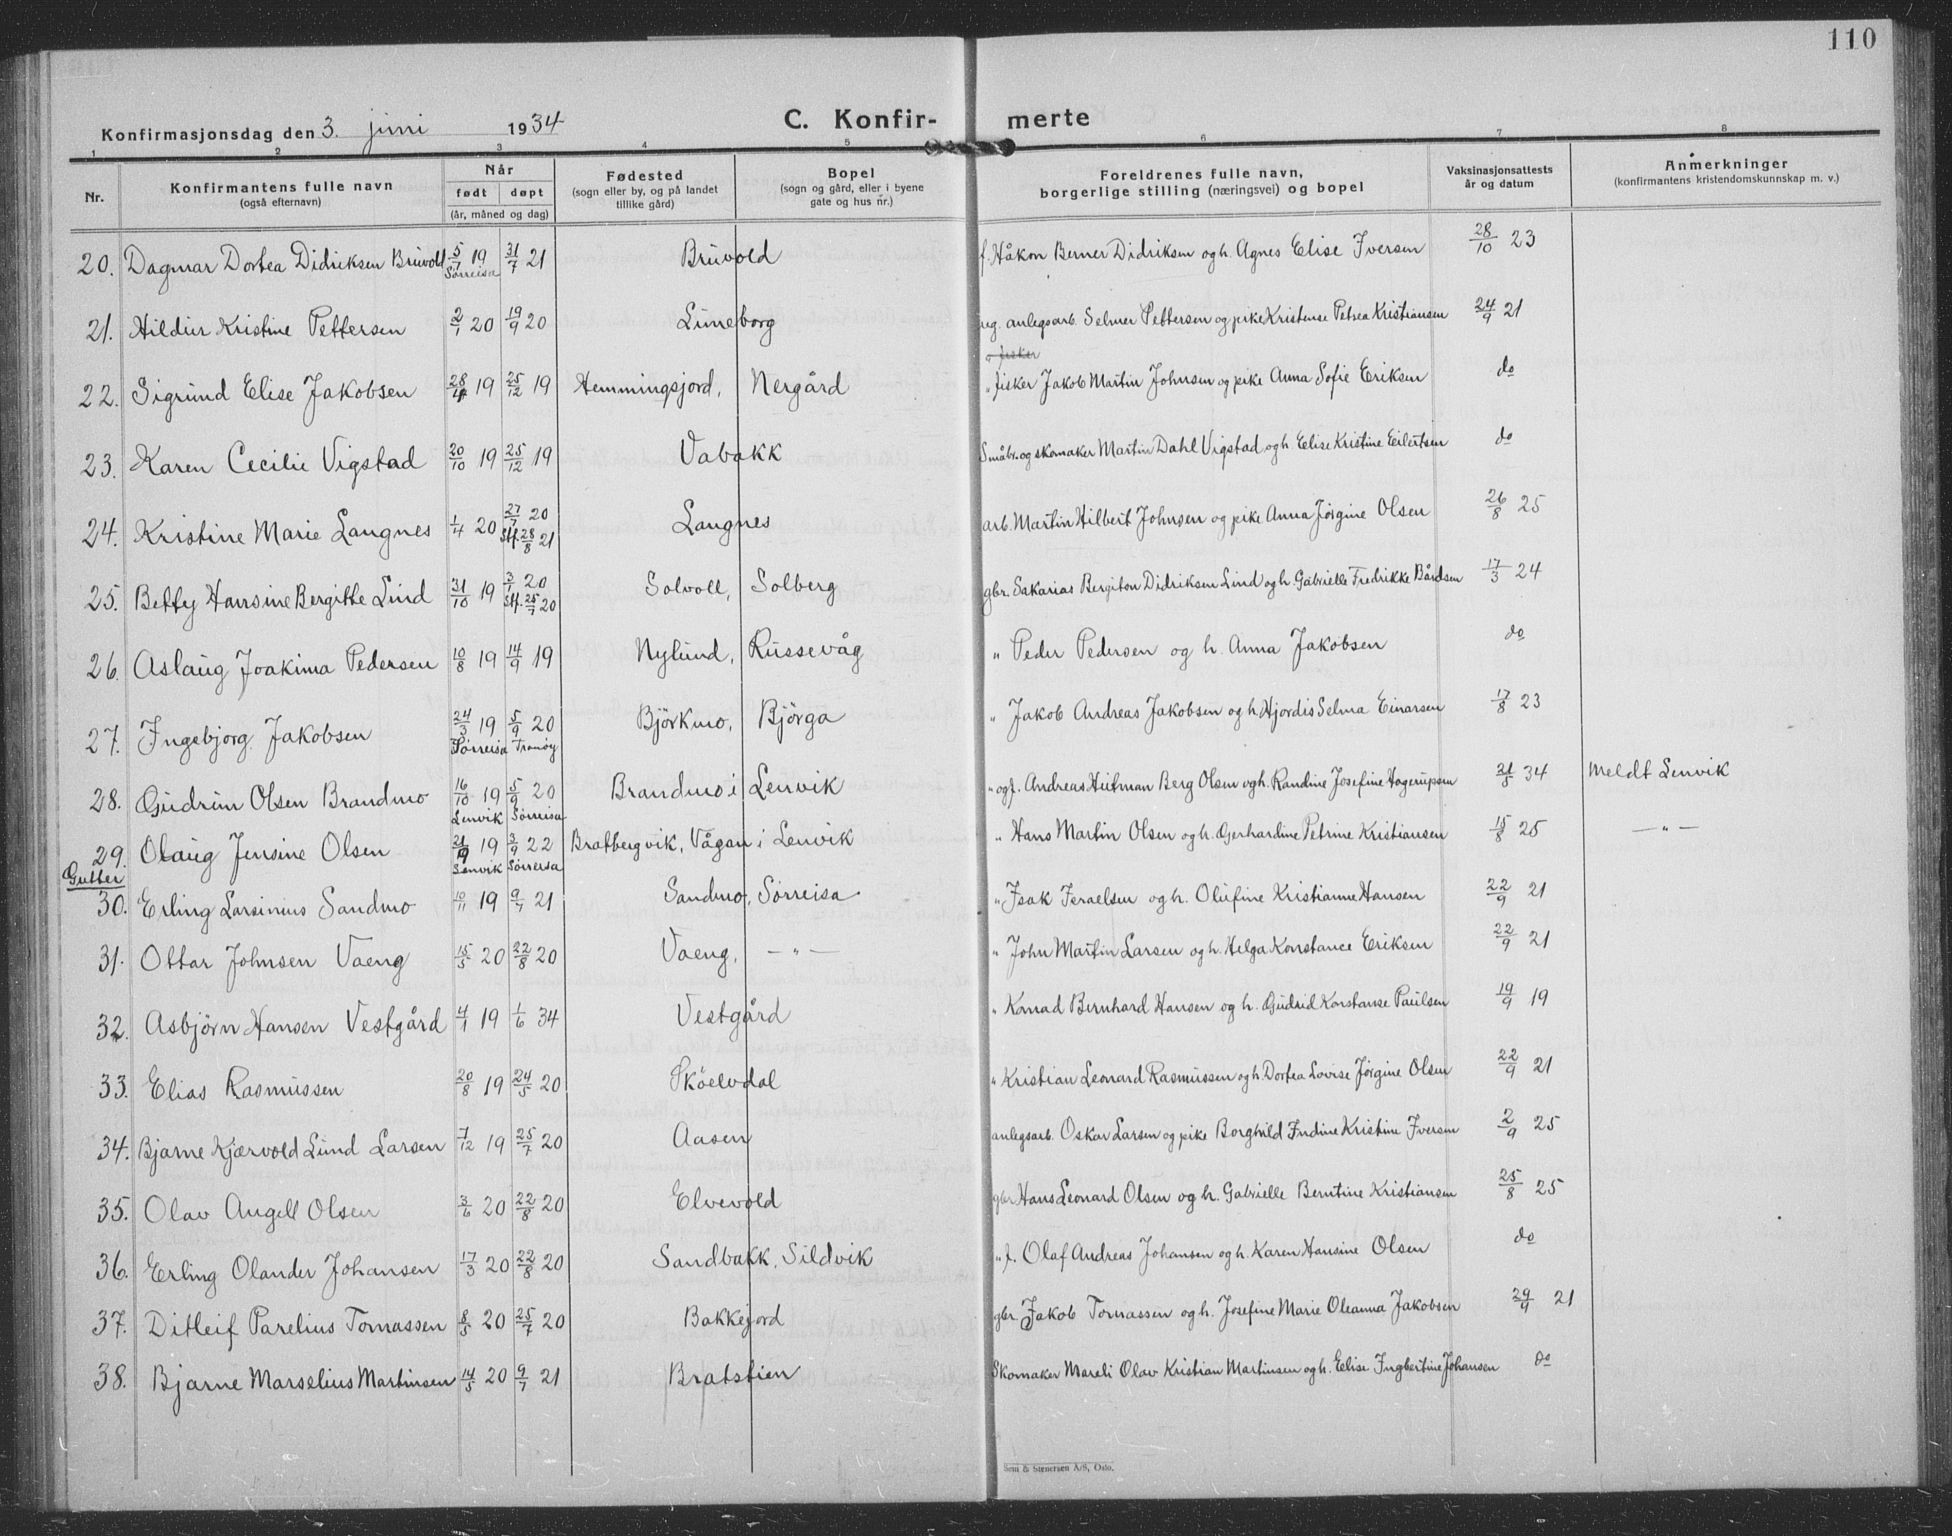 110
Konfirmasjonsdag den 3. juni 1934
C. Konfir- merte
1 2 3 4 5 6 7 8
Nr. Konfirmantens fulle navn (også efternavn) Når født døpt (år, måned og dag) Fødested (sogn eller by, og på landet tillike gård) Bopel (sogn og gård, eller i byene gate og hus nr.) Foreldrenes fulle navn, borgerlige stilling (næringsvei) og bopel Vaksinasjonsattests år og datum Anmerkninger (konfirmantens kristendomskunnskap m. v.)
20. Dagmar Dortea Didriksen Brüvoll 5/7 19 Sørreisa 31/7 21 Brüvold f. Håkon Berner Didriksen og h. Agnes Elise Iversen 28/10 23
21. Hildur Kristine Pettersen 2/1 20 19/9 20 Lüneborg ug. anlegsarb. Selmer Pettersen og pike Kristense Petrea Kristiansen 24/9 21
o fisker
22. Sigründ Elise Jakobsen 28/4 19 25/12 19 Hemmingsjord, Nergård " fisker Jakob Martin Johnsen og pike Anna Sofie Eriksen do
23. Karen Cecilie Vigstad 20/10 19 25/12 19 Vabakk Småbr. og skomaker Martin Dahl Vigstad og h. Elise Kristine Eilertsen do
24. Kristine Marie Langnes 1/4 20 27/7 20 Stf. 28/8 21 Langnes arb. Martin Hilbert Johnsen og pike Anna Jørgine Olsen 26/8 25
25. Betty Hansine Bergitte Lind 31/10 19 3/1 20 Stf. 25/7 20 Solvoll, Solberg gbr. Sakarias Bergiton Didriksen Lind og h. Gabrielle Fredrikke Bårdsen 17/3 24
26. Aslaüg Joakima Pedersen 10/8 19 14/9 19 Nylünd, Rüssevåg " Peder Pedersen og h. Anna Jakobsen do
27. Ingebjørg Jakobsen 24/3 19 Sørreisa 5/9 20 Tranøy Björkmo, Bjørga " Jakob Andreas Jakobsen og h. Hjordis Selma Einarsen 17/8 23
28. Güdrün Olsen Brandmo 16/10 19 Lenvik 5/9 20 Sørreisa Brandmo i Lenvik " og f. Andreas Hütman Berg Olsen og h. Randine Josefine Hagerüpsen 31/5 34 Meldt Lenvik
29. Olaüg Jensine Olsen 21/9 19 Lenvik 3/9 22 Sørreisa Bratbergvik, Vågan i Lenvik " Hans Martin Olsen og h. Gerhardine Petrine Kristiansen 15/8 25 — " —
Gutter
30. Erling Larsinius Sandmo 10/11 19 9/7 21 Sandmo, Sørreisa " Isak Israelsen og h. Olüfine Kristianne Hansen 22/9 21
31. Ottar Johnsen Vaeng 15/5 20 22/8 20 Vaeng, — " — " John Martin Larsen og h. Helga Konstance Eriksen 22/9 21
32. Asbjörn Hansen Vestgård 4/1 19 1/6 34 Vestgård " Konrad Bernhard Hansen og h. Güdrid Konstanse Paulsen 19/9 19
33. Elias Rasmüssen 20/8 19 24/5 20 Sköelvdal " Kristian Leonard Rasmüssen og h. Dortea Lovise Jörgine Olsen 22/9 21
34. Bjarne Kjærvold Lünd Larsen 7/12 19 25/7 20 Aasen anlegsarb. Oskar Larsen og pike Borghild Indine Kristine Iversen 2/9 25
35. Olav Angell Olsen 3/6 20 22/8 20 Elvevold gbr. Hans Leonard Olsen og h. Gabrielle Berntine Kristiansen 25/8 25
36. Erling Olander Johansen 17/3 20 22/8 20 Sandbakk, Sildvik " f. Olaf Andreas Johansen og h. Karen Hansine Olsen do
37. Ditleif Parelius Tomassen 8/5 20 25/7 20 Bakkejord gbr. Jakob Tomassen og h. Josefine Marie Oleanna Jakobsen 29/9 21
38. Bjarne Marselius Martinsen 14/5 20 9/7 21 Bratstien Skomaker Mareli Olav Kristian Martinsen og h. Elise Ingbertine Johansen do
Sem & Stenersen A/S, Oslo.